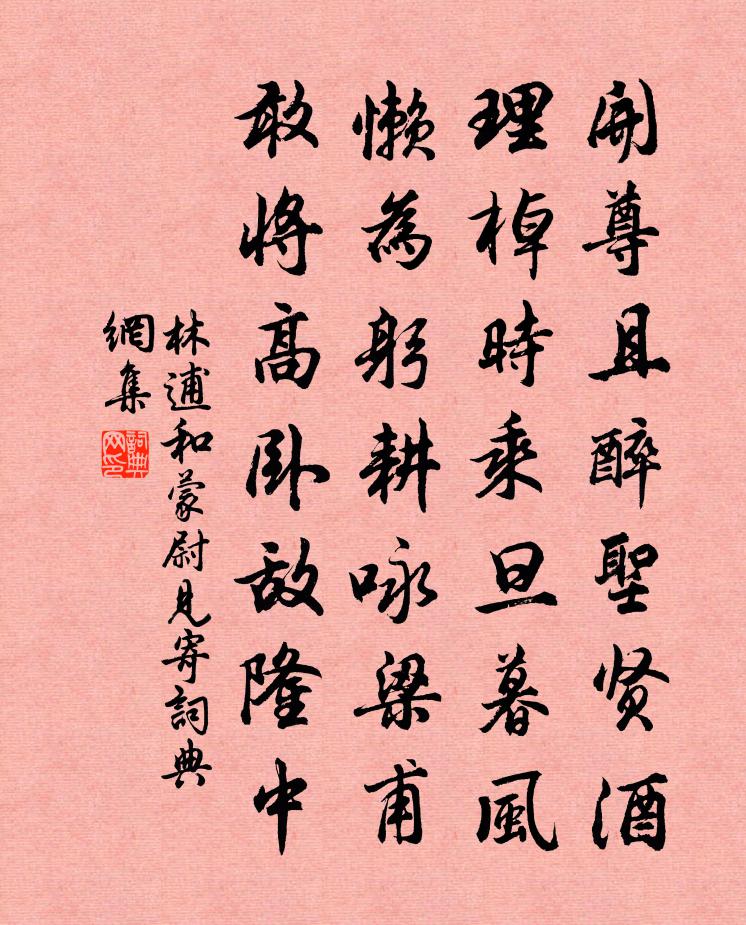 開尊且醉聖贤酒
理棹時乘旦暮風
懒為躬耕咏梁甫
敢將高卧敌隆中
林逋和蒙尉見寄詞典
網集
詞典
网印